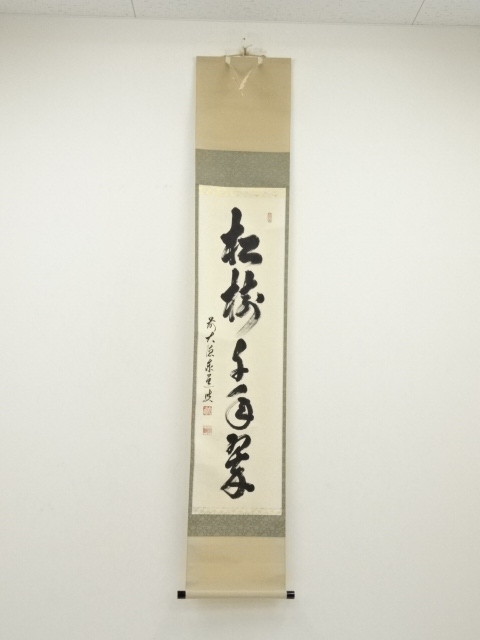 松樹千年翠
前大徳